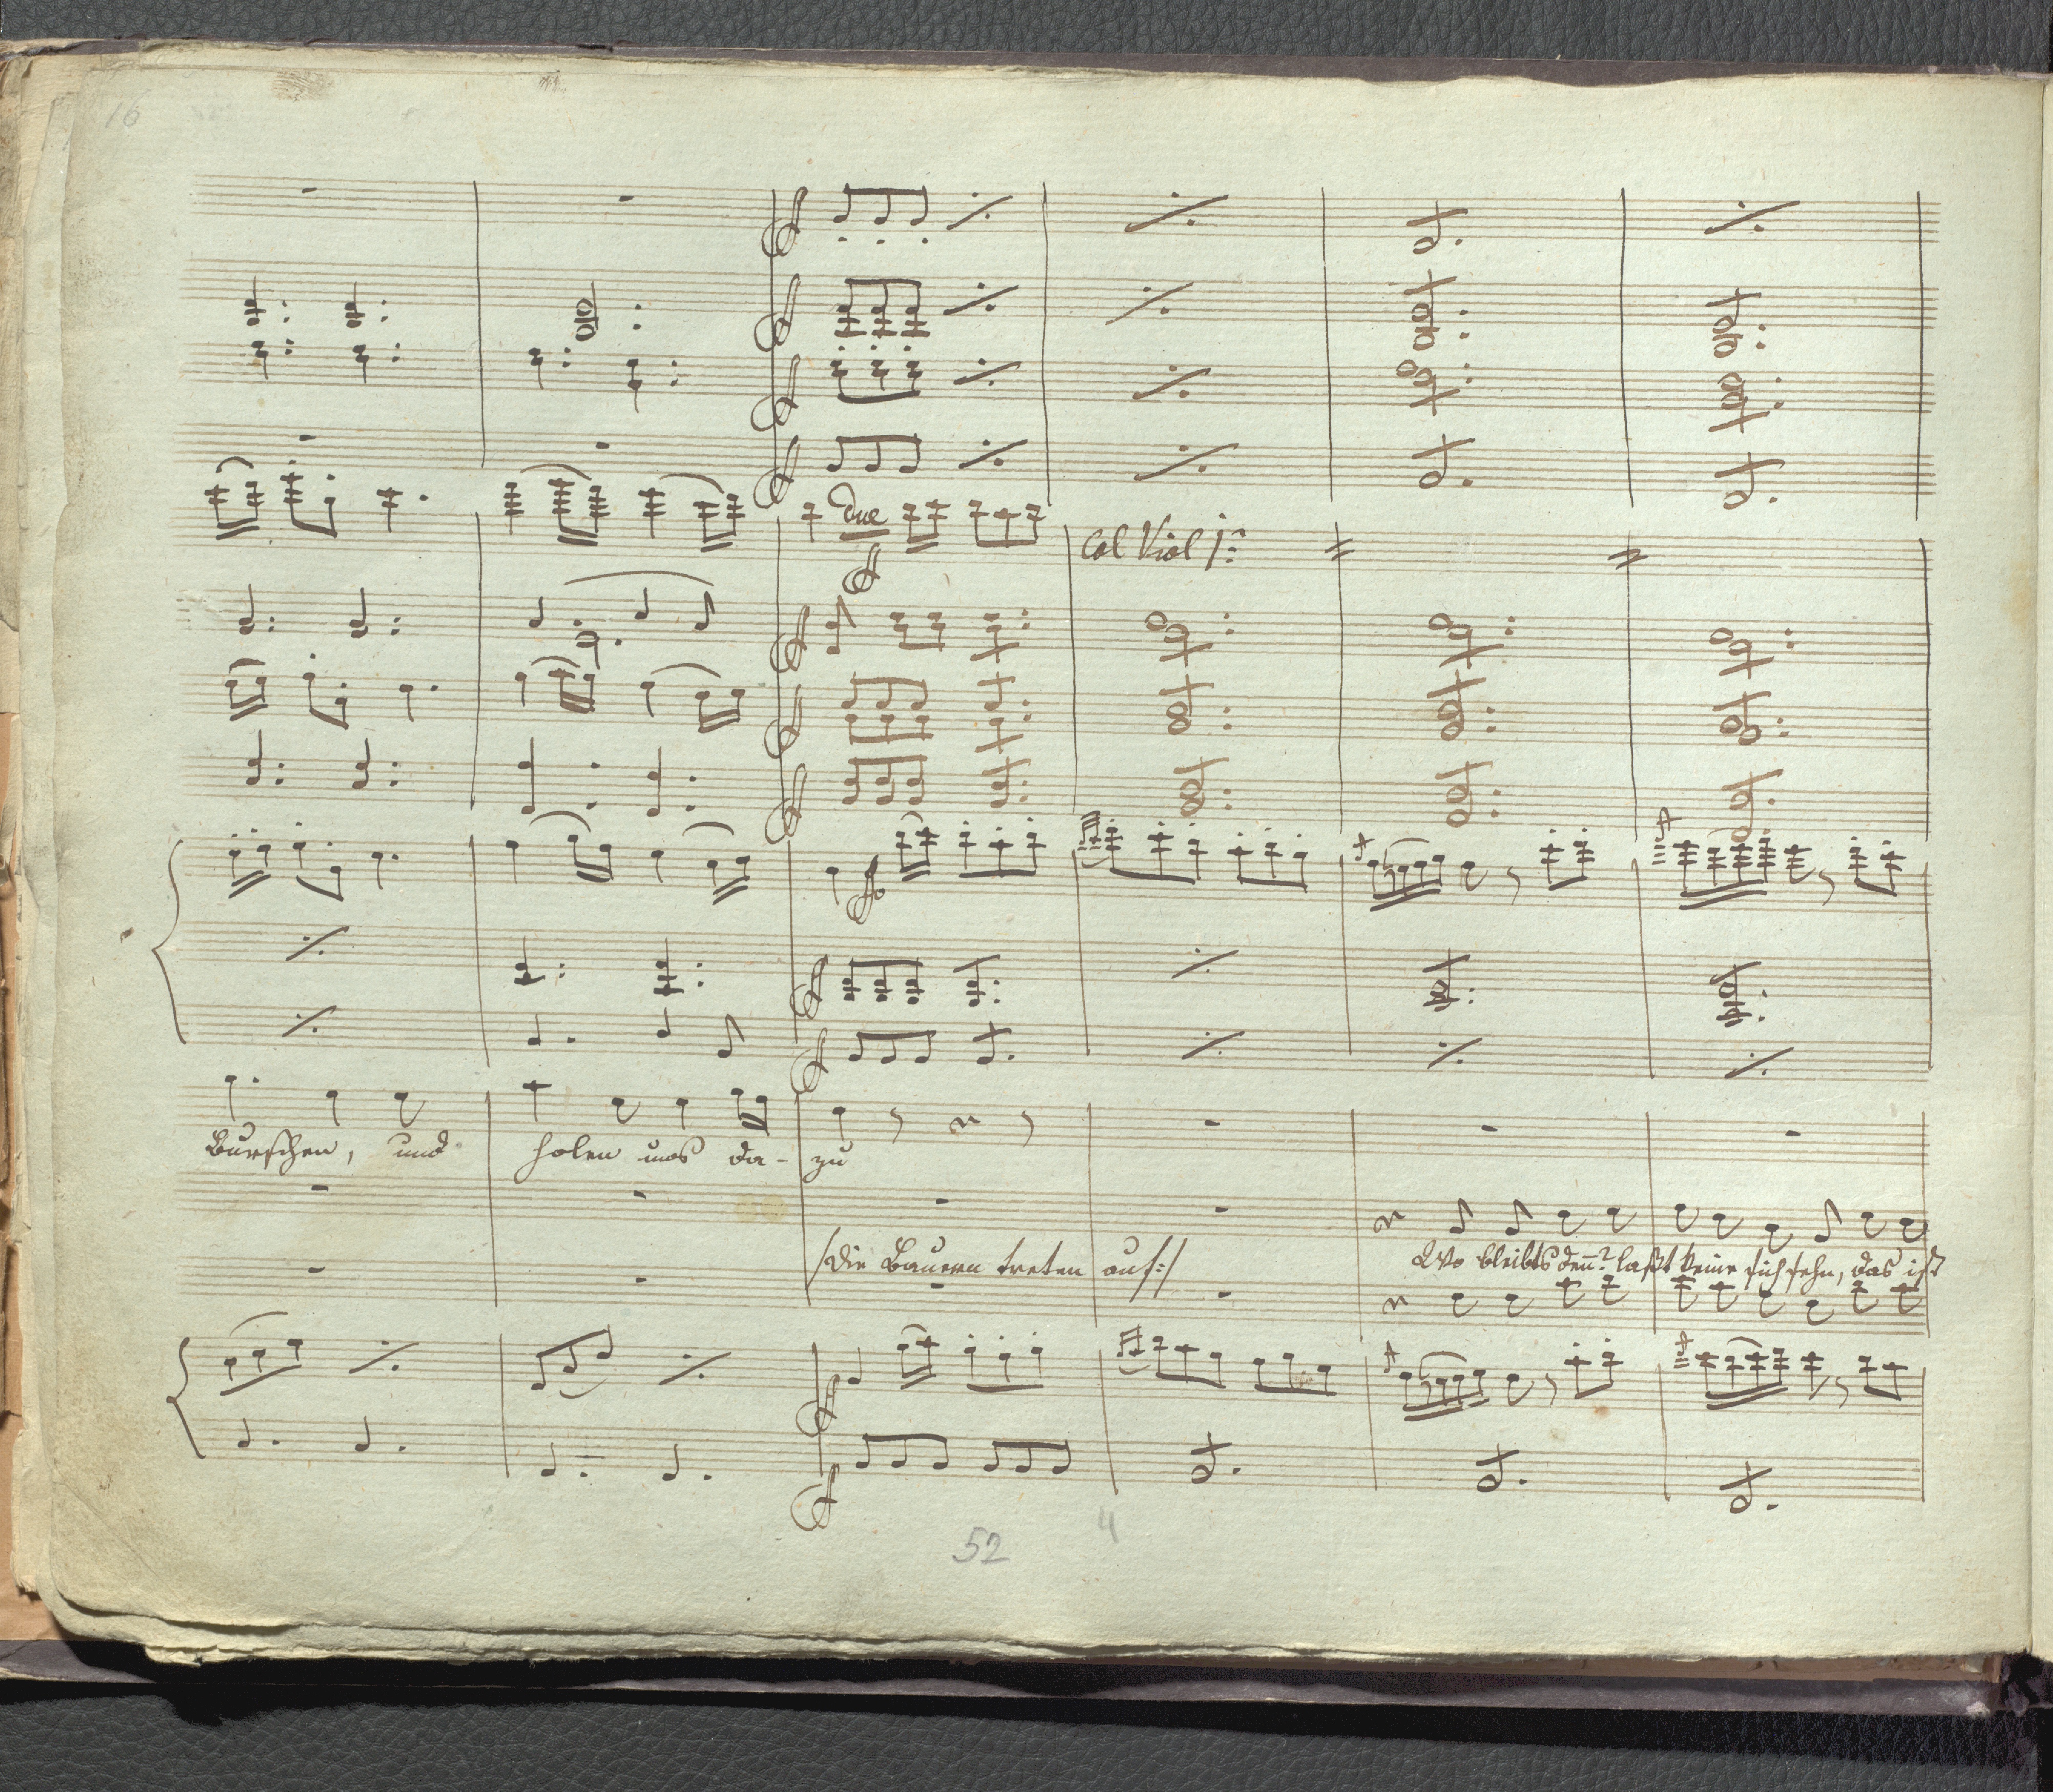 16
due
Col Viol 1º:
Burschen, und holen uns da- zu
/:Die Bauern treten auf:/
Wo bleibts den̄? laßt keine sich sehn, das ist
52 4